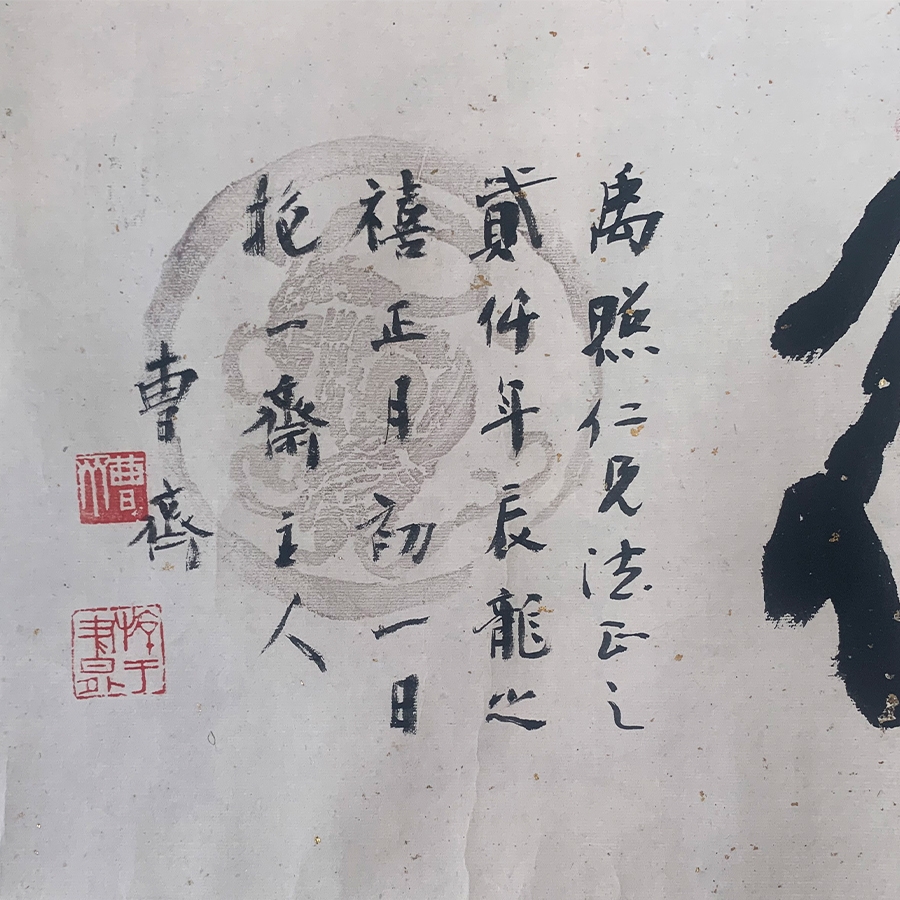 禹照仁兄法正之
貳仟年辰龍之
禧正月初一日
抱一齋主人
曹齊